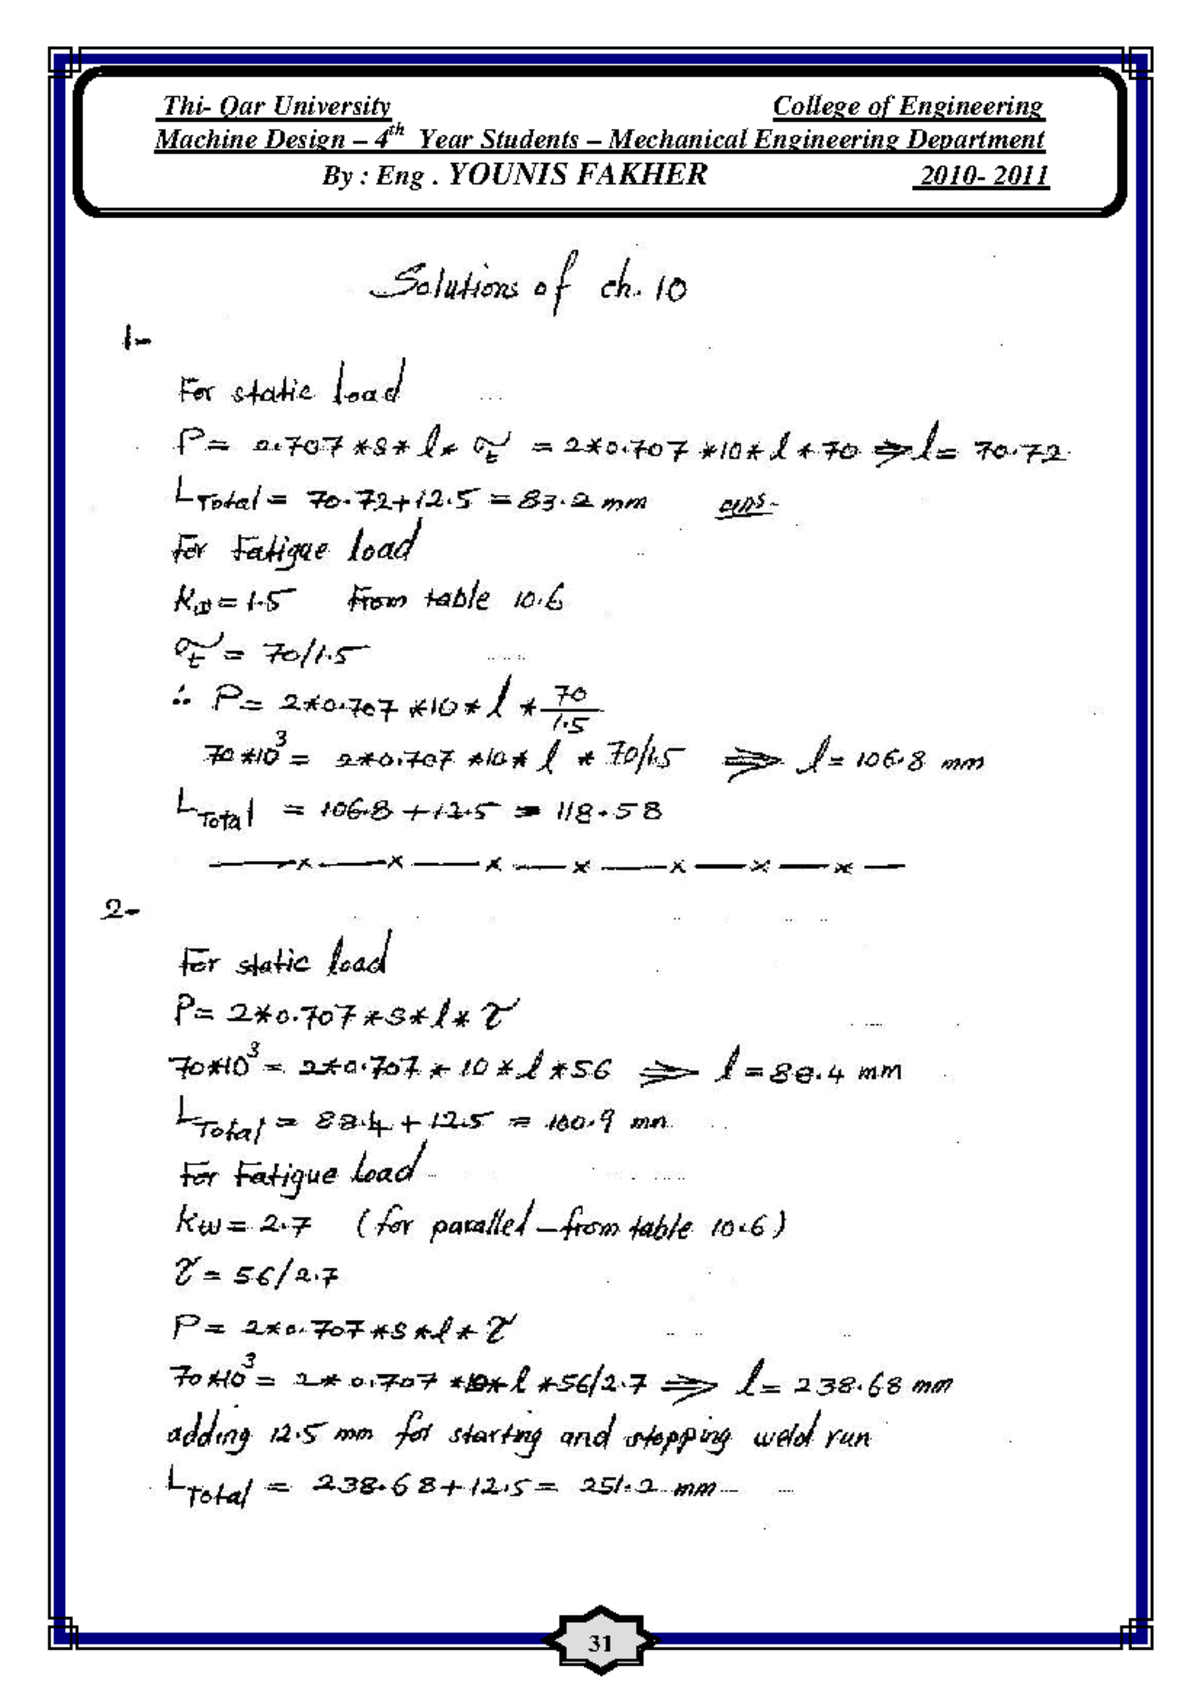 Thi- Qar University College of Engineering
Machine Design – 4th Year Students – Mechanical Engineering Department
By : Eng . YOUNIS FAKHER 2010- 2011
Solutions of ch. 10
1-
For static load
P= 2.707*S*l* σt = 2*0.707*10*l*70 ⇒ l= 70.72
LTotal = 70.72+12.5 = 83.2 mm ans.
For Fatigue load
Kw = 1.5 From table 10.6
σt = 70/1.5
∴ P= 2*0.707*10*l*70/1.5
70*10³ = 2*0.707*10*l*70/1.5 ⇒ l= 106.8 mm
LTotal = 106.8+12.5 = 118.58
2-
For static load
P= 2*0.707*S*l*τ
70*10³ = 2*0.707*10*l*56 ⇒ l = 88.4 mm
LTotal = 88.4+12.5 = 100.9 mm
For Fatigue load
Kw = 2.7 (for paralled – from table 10.6)
τ = 56/2.7
P= 2*0.707*S*l*τ
70*10³ = 2*0.707*10*l*56/2.7 ⇒ l= 238.68 mm
adding 12.5 mm for starting and stopping weld run
LTotal = 238.68+12.5 = 251.2 mm
31